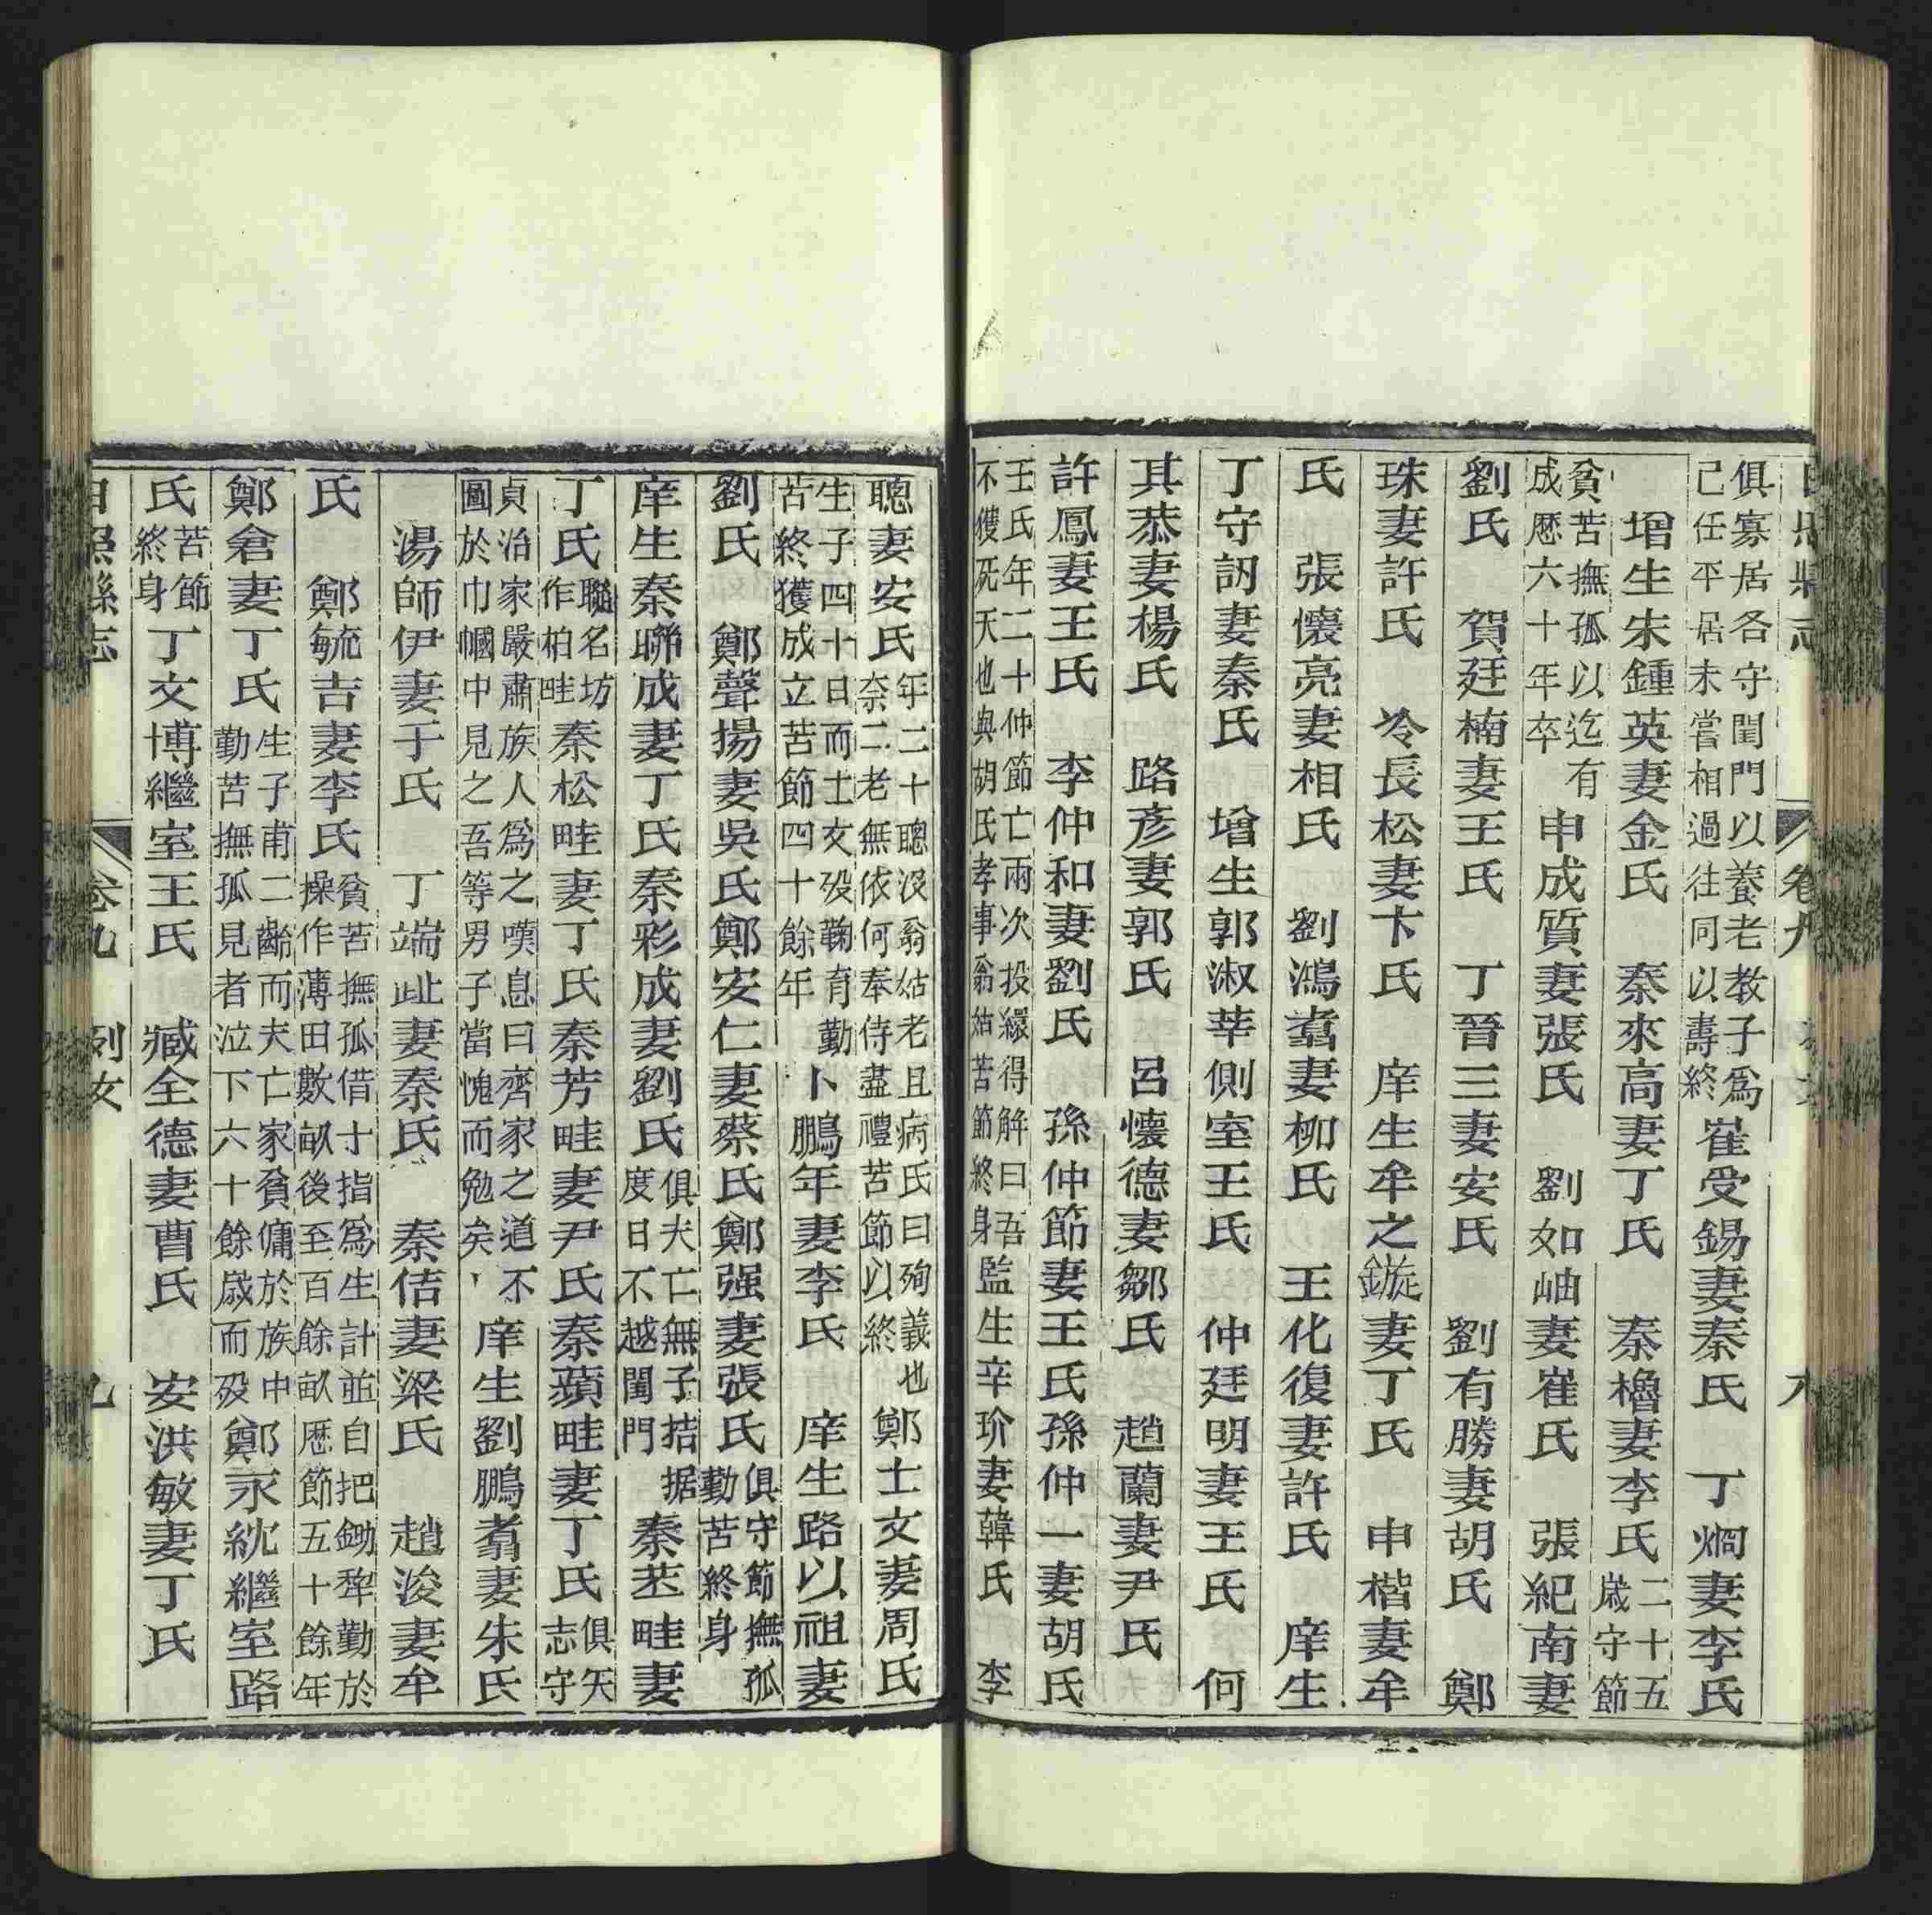 日照縣志 卷九 列女 八
俱寡居各守閨門以養老教子為
己任平居未嘗相過往同以壽終
崔受錫妻秦氏 丁烱妻李氏
增生朱鍾英妻金氏 秦來高妻丁氏 秦櫓妻李氏
二十五
歲守節
貧苦撫孤以迄有
成歷六十年卒
申成質妻張氏 劉如岫妻崔氏 張紀南妻
劉氏 賀廷楠妻王氏 丁晉三妻安氏 劉有勝妻胡氏 鄭
珠妻許氏 冷長松妻卞氏 庠生牟之鏇妻丁氏 申楷妻牟
氏 張懷亮妻相氏 劉鴻翥妻柳氏 王化復妻許氏 庠生
丁守訒妻秦氏 增生郭淑莘側室王氏 仲廷明妻王氏 何
其恭妻楊氏 路彥妻郭氏 呂懷德妻鄒氏 趙蘭妻尹氏
許鳳妻王氏 李仲和妻劉氏 孫仲節妻王氏孫仲一妻胡氏
王氏年二十仲節亡兩次投繯得解曰吾
不獲死天也與胡氏孝事翁姑苦節終身
監生辛玠妻韓氏 李
聰妻安氏
年二十聰沒翁姑老且病氏曰殉義也
奈二老無依何奉侍盡禮苦節以終
鄭士文妻周氏
生子四十日而士文歿鞠育勤
苦終獲成立苦節四十餘年
卜鵬年妻李氏 庠生路以祖妻
劉氏 鄭聲揚妻吳氏鄭安仁妻蔡氏鄭强妻張氏
俱守節撫孤
勤苦終身
庠生秦聯成妻丁氏秦彩成妻劉氏
俱夫亡無子拮据
度日不越閨門
秦苤畦妻
丁氏
聯名坊
作柏畦
秦松畦妻丁氏秦芳畦妻尹氏秦蘋畦妻丁氏
俱矢
志守
貞治家嚴肅族人為之嘆息曰齊家之道不
圖於巾幗中見之吾等男子當愧而勉矣
庠生劉鵬翥妻朱氏
湯師伊妻于氏 丁端趾妻秦氏 秦佶妻梁氏 趙浚妻牟
氏 鄭毓吉妻李氏
貧苦撫孤借十指為生計並自把鋤犂勤於
操作薄田數畝後至百餘畝歷節五十餘年
鄭倉妻丁氏
生子甫二齡而夫亡家貧傭於族中
勤苦撫孤見者泣下六十餘歲而歿
鄭永紞繼室路
氏
苦節
終身
丁文博繼室王氏 臧全德妻曹氏 安洪敏妻丁氏
日照縣志 卷九 列女 九